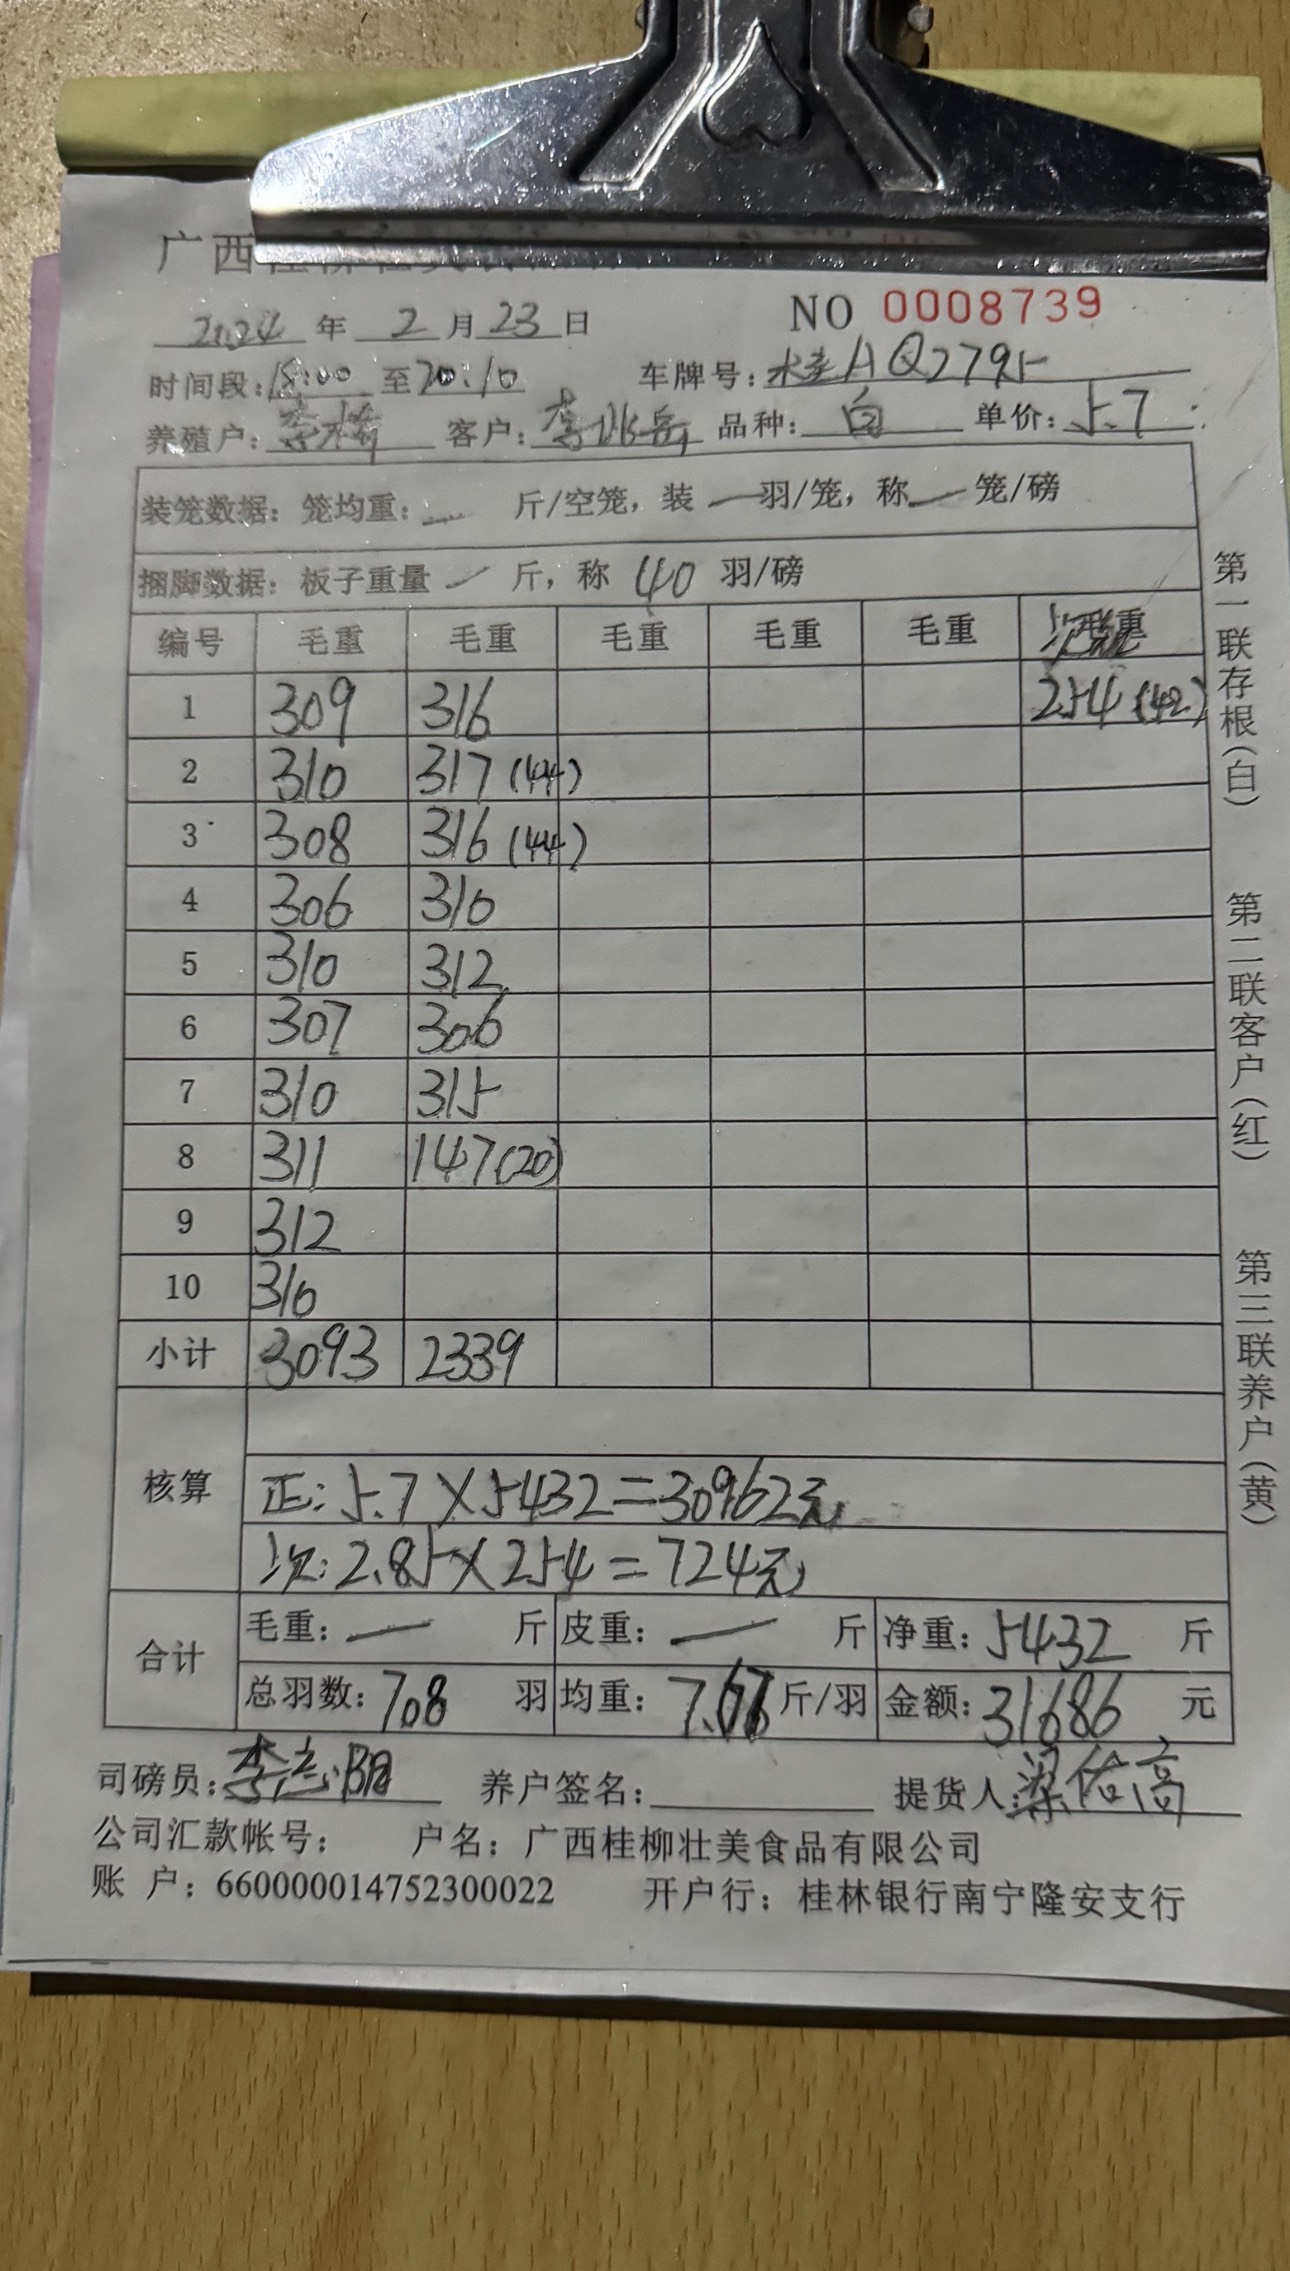 广西
NO 0008739
2024 年 2 月 23 日
时间段:18:00 至 20:10 车牌号: AQ2795
养殖户: 李 客户: 李 品种: 白 单价: 5.7
装笼数据: 笼均重: — 斤/空笼, 装 — 羽/笼, 称 — 笼/磅
捆脚数据: 板子重量 — 斤, 称 40 羽/磅
编号 毛重 毛重 毛重 毛重 毛重 毛重
1 309 316 254 (42)
2 310 317 (44)
3 308 316 (44)
4 306 310
5 310 312
6 307 306
7 310 315
8 311 147(20)
9 312
10 310
小计 3093 2339
核算
正: 5.7×5432=30962元
次: 2.85×254=724元
合计
毛重: — 斤 皮重: — 斤 净重: 5432 斤
总羽数: 708 羽 均重: 7.67 斤/羽 金额: 31686 元
司磅员: 李志阳 养户签名: 提货人: 梁佑高
公司汇款帐号: 户名: 广西桂柳壮美食品有限公司
账 户: 660000014752300022 开户行: 桂林银行南宁隆安支行
第一联存根(白) 第二联客户(红) 第三联养户(黄)